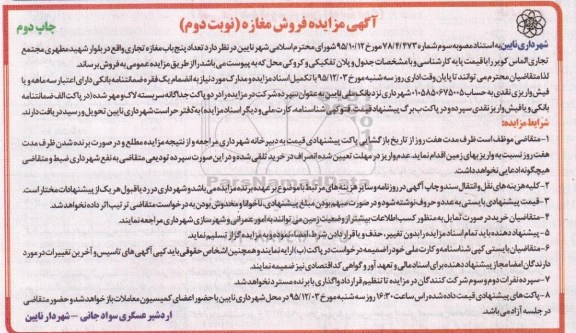 آگهی مزایده فروش مغازه (نوبت دوم)
چاپ دوم
شهرداری نایین به استناد مصوبه سوم شماره ۷۸/۴/۴۷۳ مورخ ۹۵/۱۰/۱۲ شورای محترم اسلامی شهر نایین در نظر دارد تعداد پنج باب مغازه تجاری واقع در بلوار شهید مطهری مجتمع
تجاری الماس کویر را با قیمت پایه کارشناسی و با مشخصات جدول و پلان تفکیکی و کروکی محل که به پیوست می باشد را از طریق مزایده عمومی به فروش برساند.
لذا متقاضیان محترم می توانند تا پایان وقت اداری روز سه شنبه مورخ ۹۵/۱۲/۰۳ با تکمیل اسناد مزایده و مدارک مورد نیاز به انضمام یک فقره ضمانتنامه بانکی دارای اعتبار سه ماهه و یا
فیش واریز نقدی به حساب ۰۱۰۵۸۵۰۶۷۵۰۰۵ شهرداری نزد بانک ملی نایین به عنوان سپرده شرکت در مزایده را در دو پاکت جداگانه سربسته لاک و مهر شده (در پاکت الف ضمانتنامه
بانکی و یا فیش واریز نقدی سپرده و در پاکت ب برگ پیشنهاد قیمت، فتوکپی شناسنامه، کارت ملی و دیگر اسناد مزایده) به دفتر حراست شهرداری نایین تحویل و رسید دریافت دارند.
شرایط مزایده:
۱- متقاضی موظف است ظرف مدت هفت روز از تاریخ بازگشایی پاکت پیشنهادی قیمت به دبیرخانه شهرداری مراجعه و از نتیجه مزایده مطلع و در صورت برنده شدن ظرف مدت
هفت روز نسبت به واریز بهای زمین اقدام نماید. عدم واریز در مهلت تعیین شده انصراف در خرید تلقی شده و در این صورت سپرده تودیعی متقاضی به نفع شهرداری ضبط و متقاضی
هیچگونه ادعایی نخواهد داشت.
۲- کلیه هزینه های نقل و انتقال سند و چاپ آگهی در روزنامه و سایر هزینه های مرتبط با موضوع بر عهده برنده مزایده می باشد و شهرداری در رد یا قبول هر یک از پیشنهادات مختار است.
۳- قیمت پیشنهادی بایستی به عدد و حروف نوشته شود و در صورت مبهم بودن مبلغ پیشنهادی، ناخوانا و مخدوش بودن به درخواست متقاضی ترتیب اثر داده نخواهد شد.
۴- متقاضیان خرید در صورت تمایل به منظور کسب اطلاعات بیشتر از وضعیت زمین می توانند به امور عمرانی و شهرسازی شهرداری مراجعه نمایند.
۵- پیشنهاد دهنده باید تمام اسناد مزایده را بدون تغییر، حذف و یا قرار دادن شرط، امضاء نموده و به مزایده گزار تسلیم نماید.
۶- متقاضیان بایستی کپی شناسنامه و کارت ملی خود را ضمیمه درخواست در پاکت (ب) ارایه نمایند و همچنین اشخاص حقوقی باید کپی آگهی های تاسیس و آخرین تغییرات در مورد
دارندگان امضاء مجاز پیشنهاد دهنده برای اسناد مالی و تعهد آور و گواهی کد اقتصادی نیز ضمیمه نمایند.
۷- سپرده نفرات دوم و سوم شرکت کنندگان در مزایده تا تنظیم قرارداد واگذاری با برنده مسترد نخواهد شد.
۸- پاکت های پیشنهادی قیمت داده شده راس ساعت ۱۶:۳۰ روز سه شنبه مورخ ۹۵/۱۲/۰۳ در محل شهرداری نایین با حضور اعضای کمیسیون معاملات باز خواهد شد و حضور متقاضی
در جلسه آزاد می باشد.
اردشیر عسگری سواد جانی - شهردار نایین
ParsNamadData